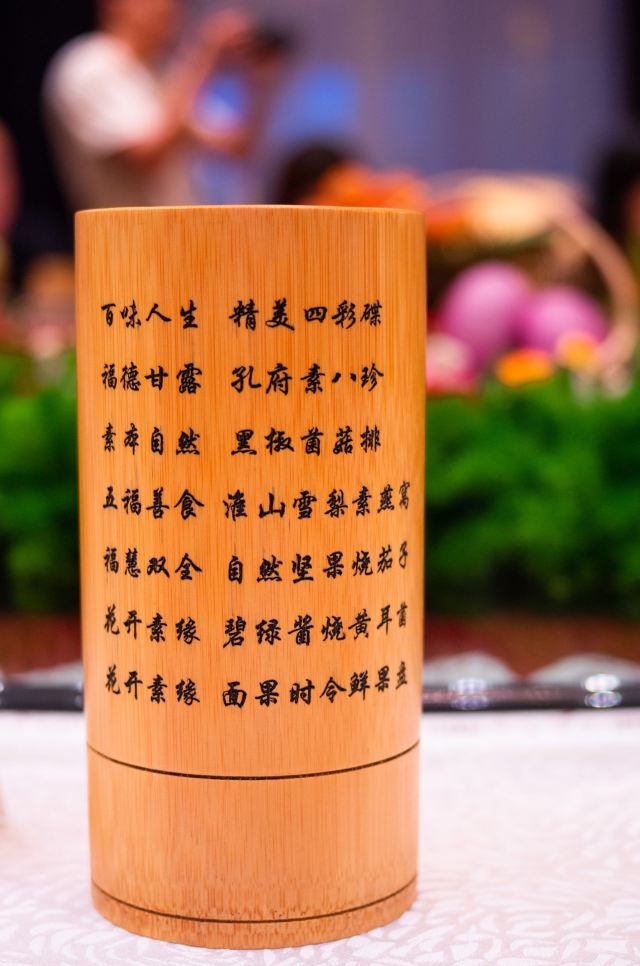 百味人生 精美四彩碟
福德甘露 孔府素八珍
素本自然 黑椒菌菇排
五福善食 淮山雪梨素燕窝
福慧双全 自然坚果烧茄子
花开素缘 碧绿酱烧黄耳菌
花开素缘 面果时令鲜果盘